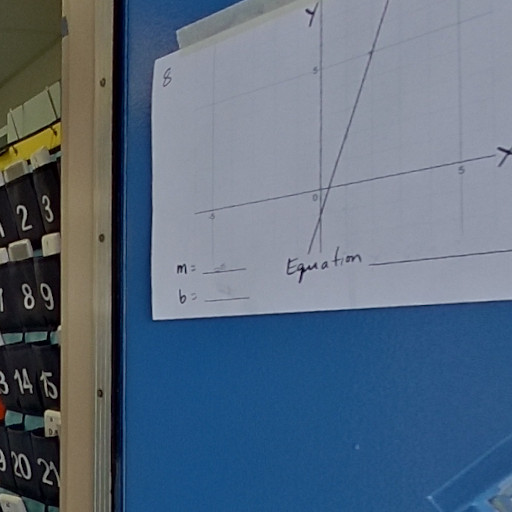 8
Y
5
5
X
0
-5
m= ____ Equation ____
b= ____
2 3
8 9
14 15
20 21